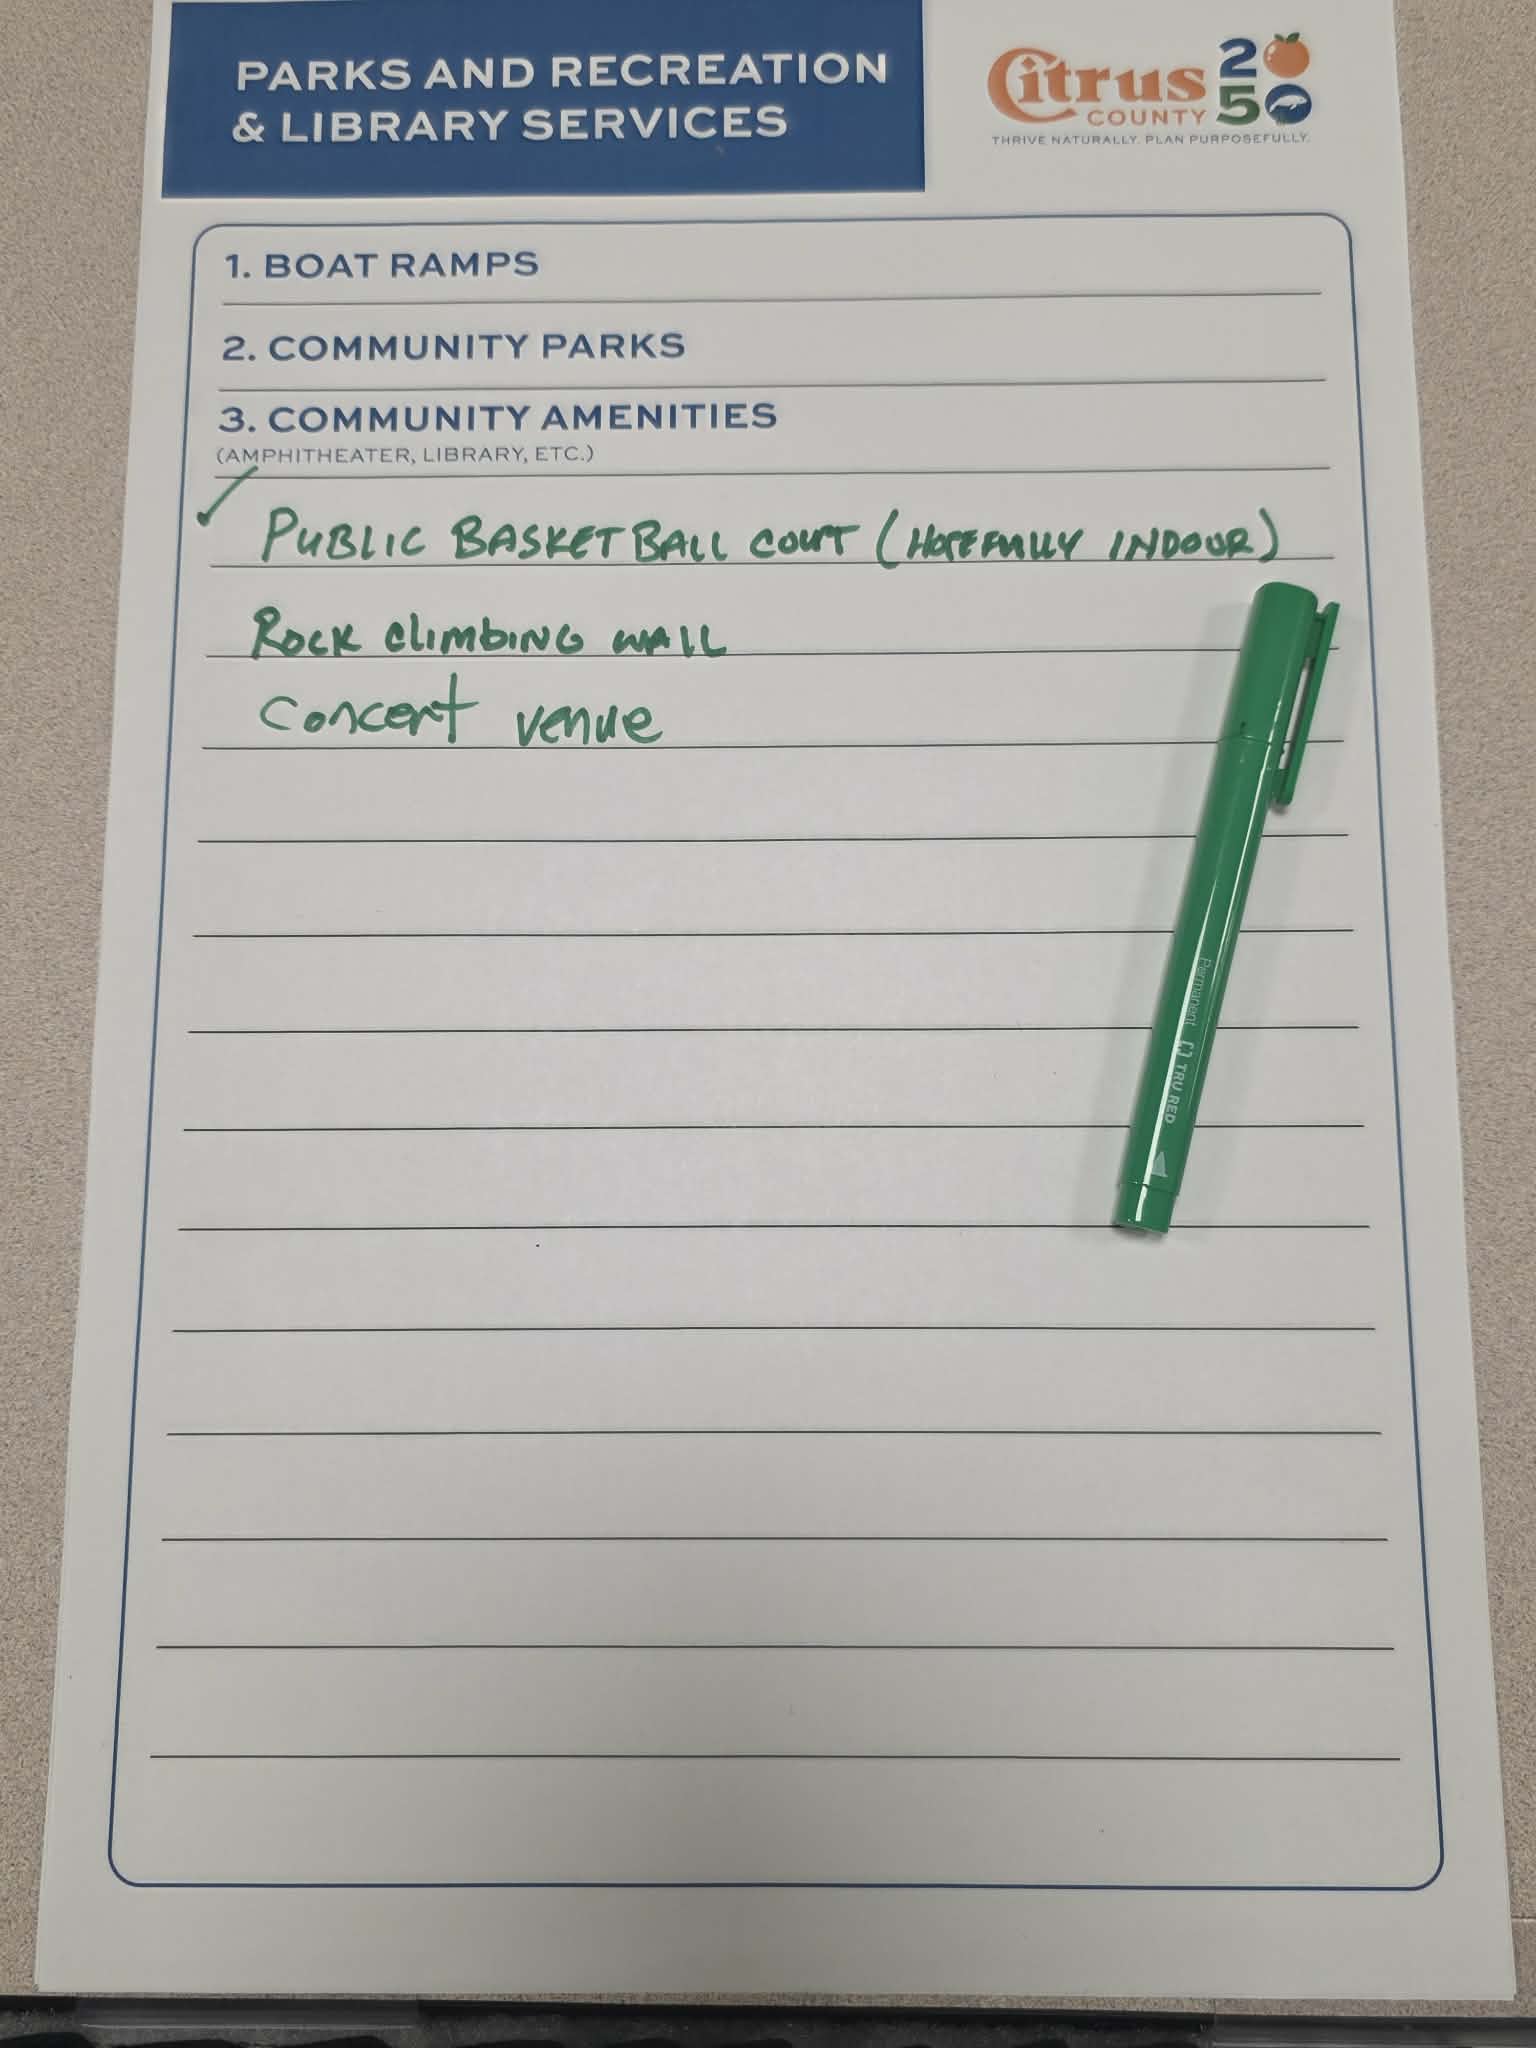 PARKS AND RECREATION
& LIBRARY SERVICES
Citrus
COUNTY
2050
THRIVE NATURALLY. PLAN PURPOSEFULLY.
1. BOAT RAMPS
2. COMMUNITY PARKS
3. COMMUNITY AMENITIES
(AMPHITHEATER, LIBRARY, ETC.)
✓ PUBLIC BASKETBALL COURT (HOPEFULLY INDOUR)
ROCK climbing wall
Concert venue
Permanent TRU RED